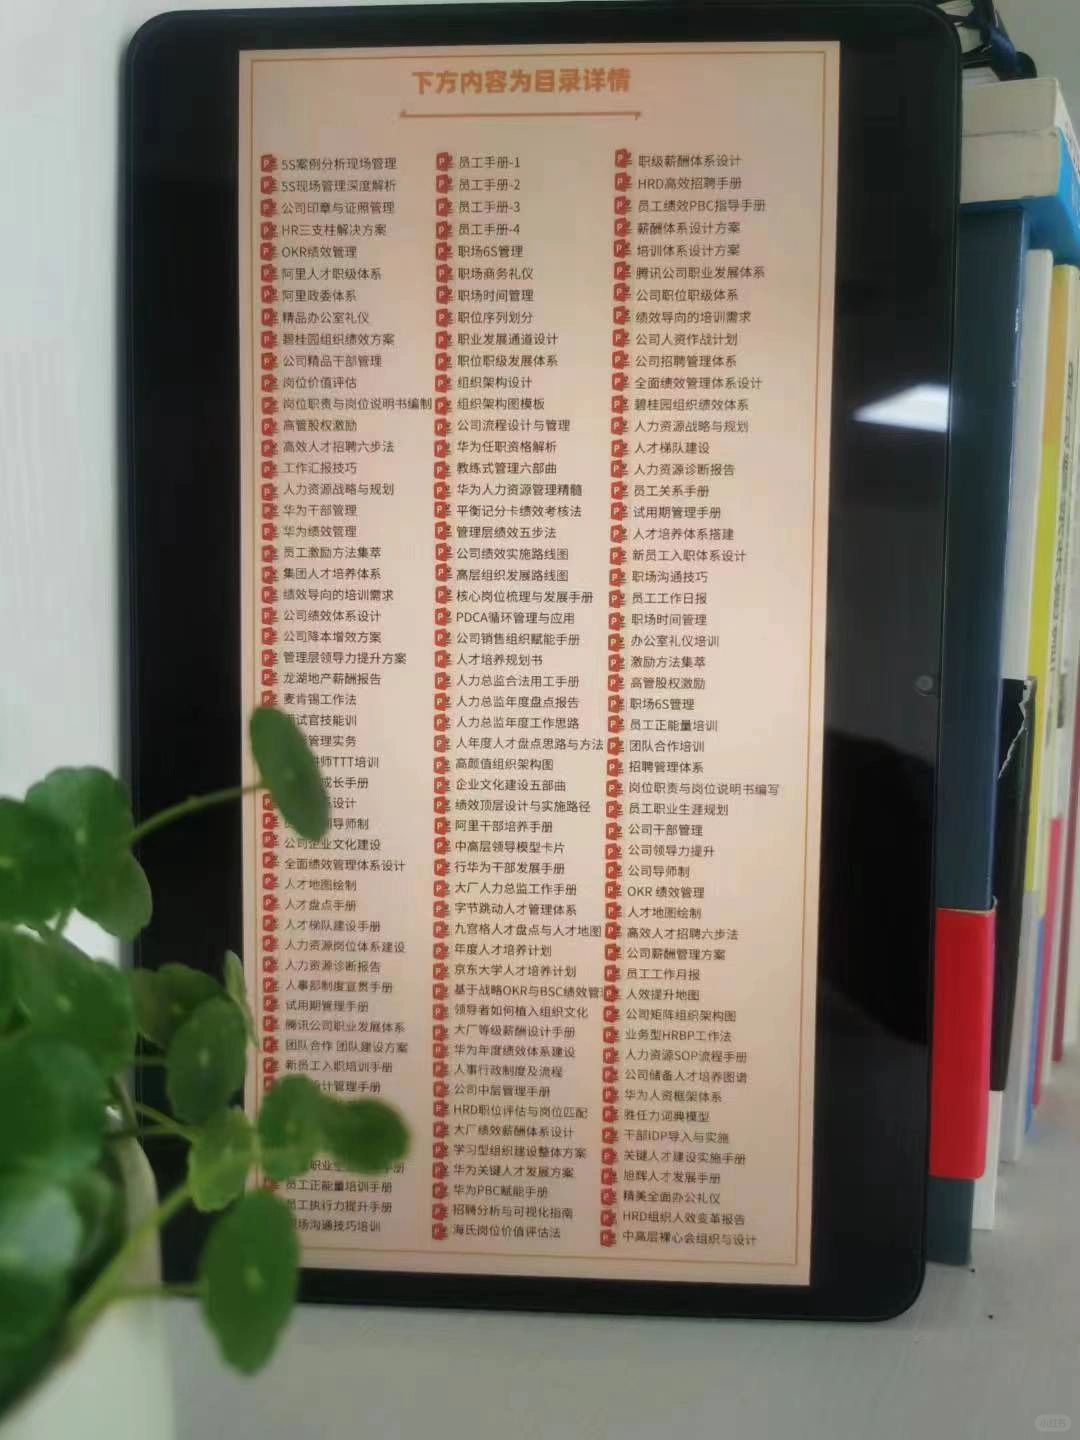 下方内容为目录详情
5S案例分析现场管理
5S现场管理深度解析
公司印章与证照管理
HR三支柱解决方案
OKR绩效管理
阿里人才职级体系
阿里政委体系
精品办公室礼仪
碧桂园组织绩效方案
公司精品干部管理
岗位价值评估
岗位职责与岗位说明书编制
高管股权激励
高效人才招聘六步法
工作汇报技巧
人力资源战略与规划
华为干部管理
华为绩效管理
员工激励方法集萃
集团人才培养体系
绩效导向的培训需求
公司绩效体系设计
公司降本增效方案
管理层领导力提升方案
龙湖地产薪酬报告
麦肯锡工作法
试官技能训
管理实务
师TTT培训
成长手册
系设计
导师制
公司企业文化建设
全面绩效管理体系设计
人才地图绘制
人才盘点手册
人才梯队建设手册
人力资源岗位体系建设
人力资源诊断报告
人事部制度宣贯手册
试用期管理手册
腾讯公司职业发展体系
团队合作 团队建设方案
新员工入职培训手册
计管理手册
职业生
手册
员工正能量培训手册
员工执行力提升手册
职场沟通技巧培训
员工手册-1
员工手册-2
员工手册-3
员工手册-4
职场6S管理
职场商务礼仪
职场时间管理
职位序列划分
职业发展通道设计
职位职级发展体系
组织架构设计
组织架构图模板
公司流程设计与管理
华为任职资格解析
教练式管理六部曲
华为人力资源管理精髓
平衡记分卡绩效考核法
管理层绩效五步法
公司绩效实施路线图
高层组织发展路线图
核心岗位梳理与发展手册
PDCA循环管理与应用
公司销售组织赋能手册
人才培养规划书
人力总监合法用工手册
人力总监年度盘点报告
人力总监年度工作思路
人年度人才盘点思路与方法
高颜值组织架构图
企业文化建设五部曲
绩效顶层设计与实施路径
阿里干部培养手册
中高层领导模型卡片
行华为干部发展手册
大厂人力总监工作手册
字节跳动人才管理体系
九宫格人才盘点与人才地图
年度人才培养计划
京东大学人才培养计划
基于战略OKR与BSC绩效管
领导者如何植入组织文化
大厂等级薪酬设计手册
华为年度绩效体系建设
人事行政制度及流程
公司中层管理手册
HRD职位评估与岗位匹配
大厂绩效薪酬体系设计
学习型组织建设整体方案
华为关键人才发展方案
华为PBC赋能手册
招聘分析与可视化指南
海氏岗位价值评估法
职级薪酬体系设计
HRD高效招聘手册
员工绩效PBC指导手册
薪酬体系设计方案
培训体系设计方案
腾讯公司职业发展体系
公司职位职级体系
绩效导向的培训需求
公司人资作战计划
公司招聘管理体系
全面绩效管理体系设计
碧桂园组织绩效体系
人力资源战略与规划
人才梯队建设
人力资源诊断报告
员工关系手册
试用期管理手册
人才培养体系搭建
新员工入职体系设计
职场沟通技巧
员工工作日报
职场时间管理
办公室礼仪培训
激励方法集萃
高管股权激励
职场6S管理
员工正能量培训
团队合作培训
招聘管理体系
岗位职责与岗位说明书编写
员工职业生涯规划
公司干部管理
公司领导力提升
公司导师制
OKR 绩效管理
人才地图绘制
高效人才招聘六步法
公司薪酬管理方案
员工工作月报
人效提升地图
公司矩阵组织架构图
业务型HRBP工作法
人力资源SOP流程手册
公司储备人才培养图谱
华为人资框架体系
胜任力词典模型
干部IDP导入与实施
关键人才建设实施手册
旭辉人才发展手册
精美全面办公礼仪
HRD组织人效变革报告
中高层裸心会组织与设计
小红书